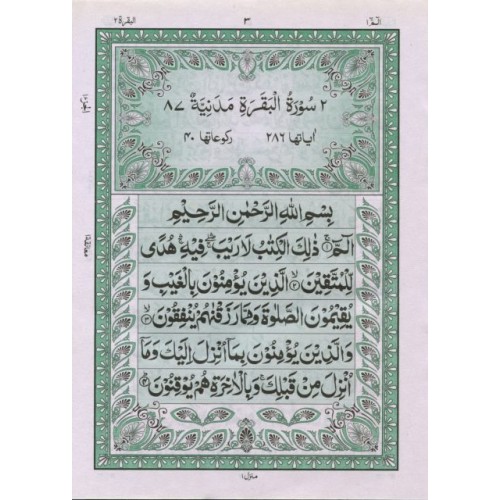 البقرة ٢
٣
الٓمّٓ ١
٢ سُوْرَةُ الْبَقَرَةِ مَدَنِيَّةٌ ٨٧
اٰیاتها ٢٨٦ رکوعاتها ٤٠
بِسْمِ اللّٰهِ الرَّحْمٰنِ الرَّحِيْمِ
الٓمّٓ ۚ﴿۱﴾ ذٰلِكَ الْكِتٰبُ لَا رَيْبَ ۛ فِيْهِ ۛ هُدًى
لِّلْمُتَّقِيْنَ ﴿۲﴾ الَّذِيْنَ يُؤْمِنُوْنَ بِالْغَيْبِ وَ
يُقِيْمُوْنَ الصَّلٰوةَ وَمِمَّا رَزَقْنٰهُمْ يُنْفِقُوْنَ ﴿۳﴾
وَالَّذِيْنَ يُؤْمِنُوْنَ بِمَاۤ اُنْزِلَ اِلَيْكَ وَمَاۤ
اُنْزِلَ مِنْ قَبْلِكَ ۚ وَبِالْاٰخِرَةِ هُمْ يُوْقِنُوْنَ ﴿۴﴾
منزل ١